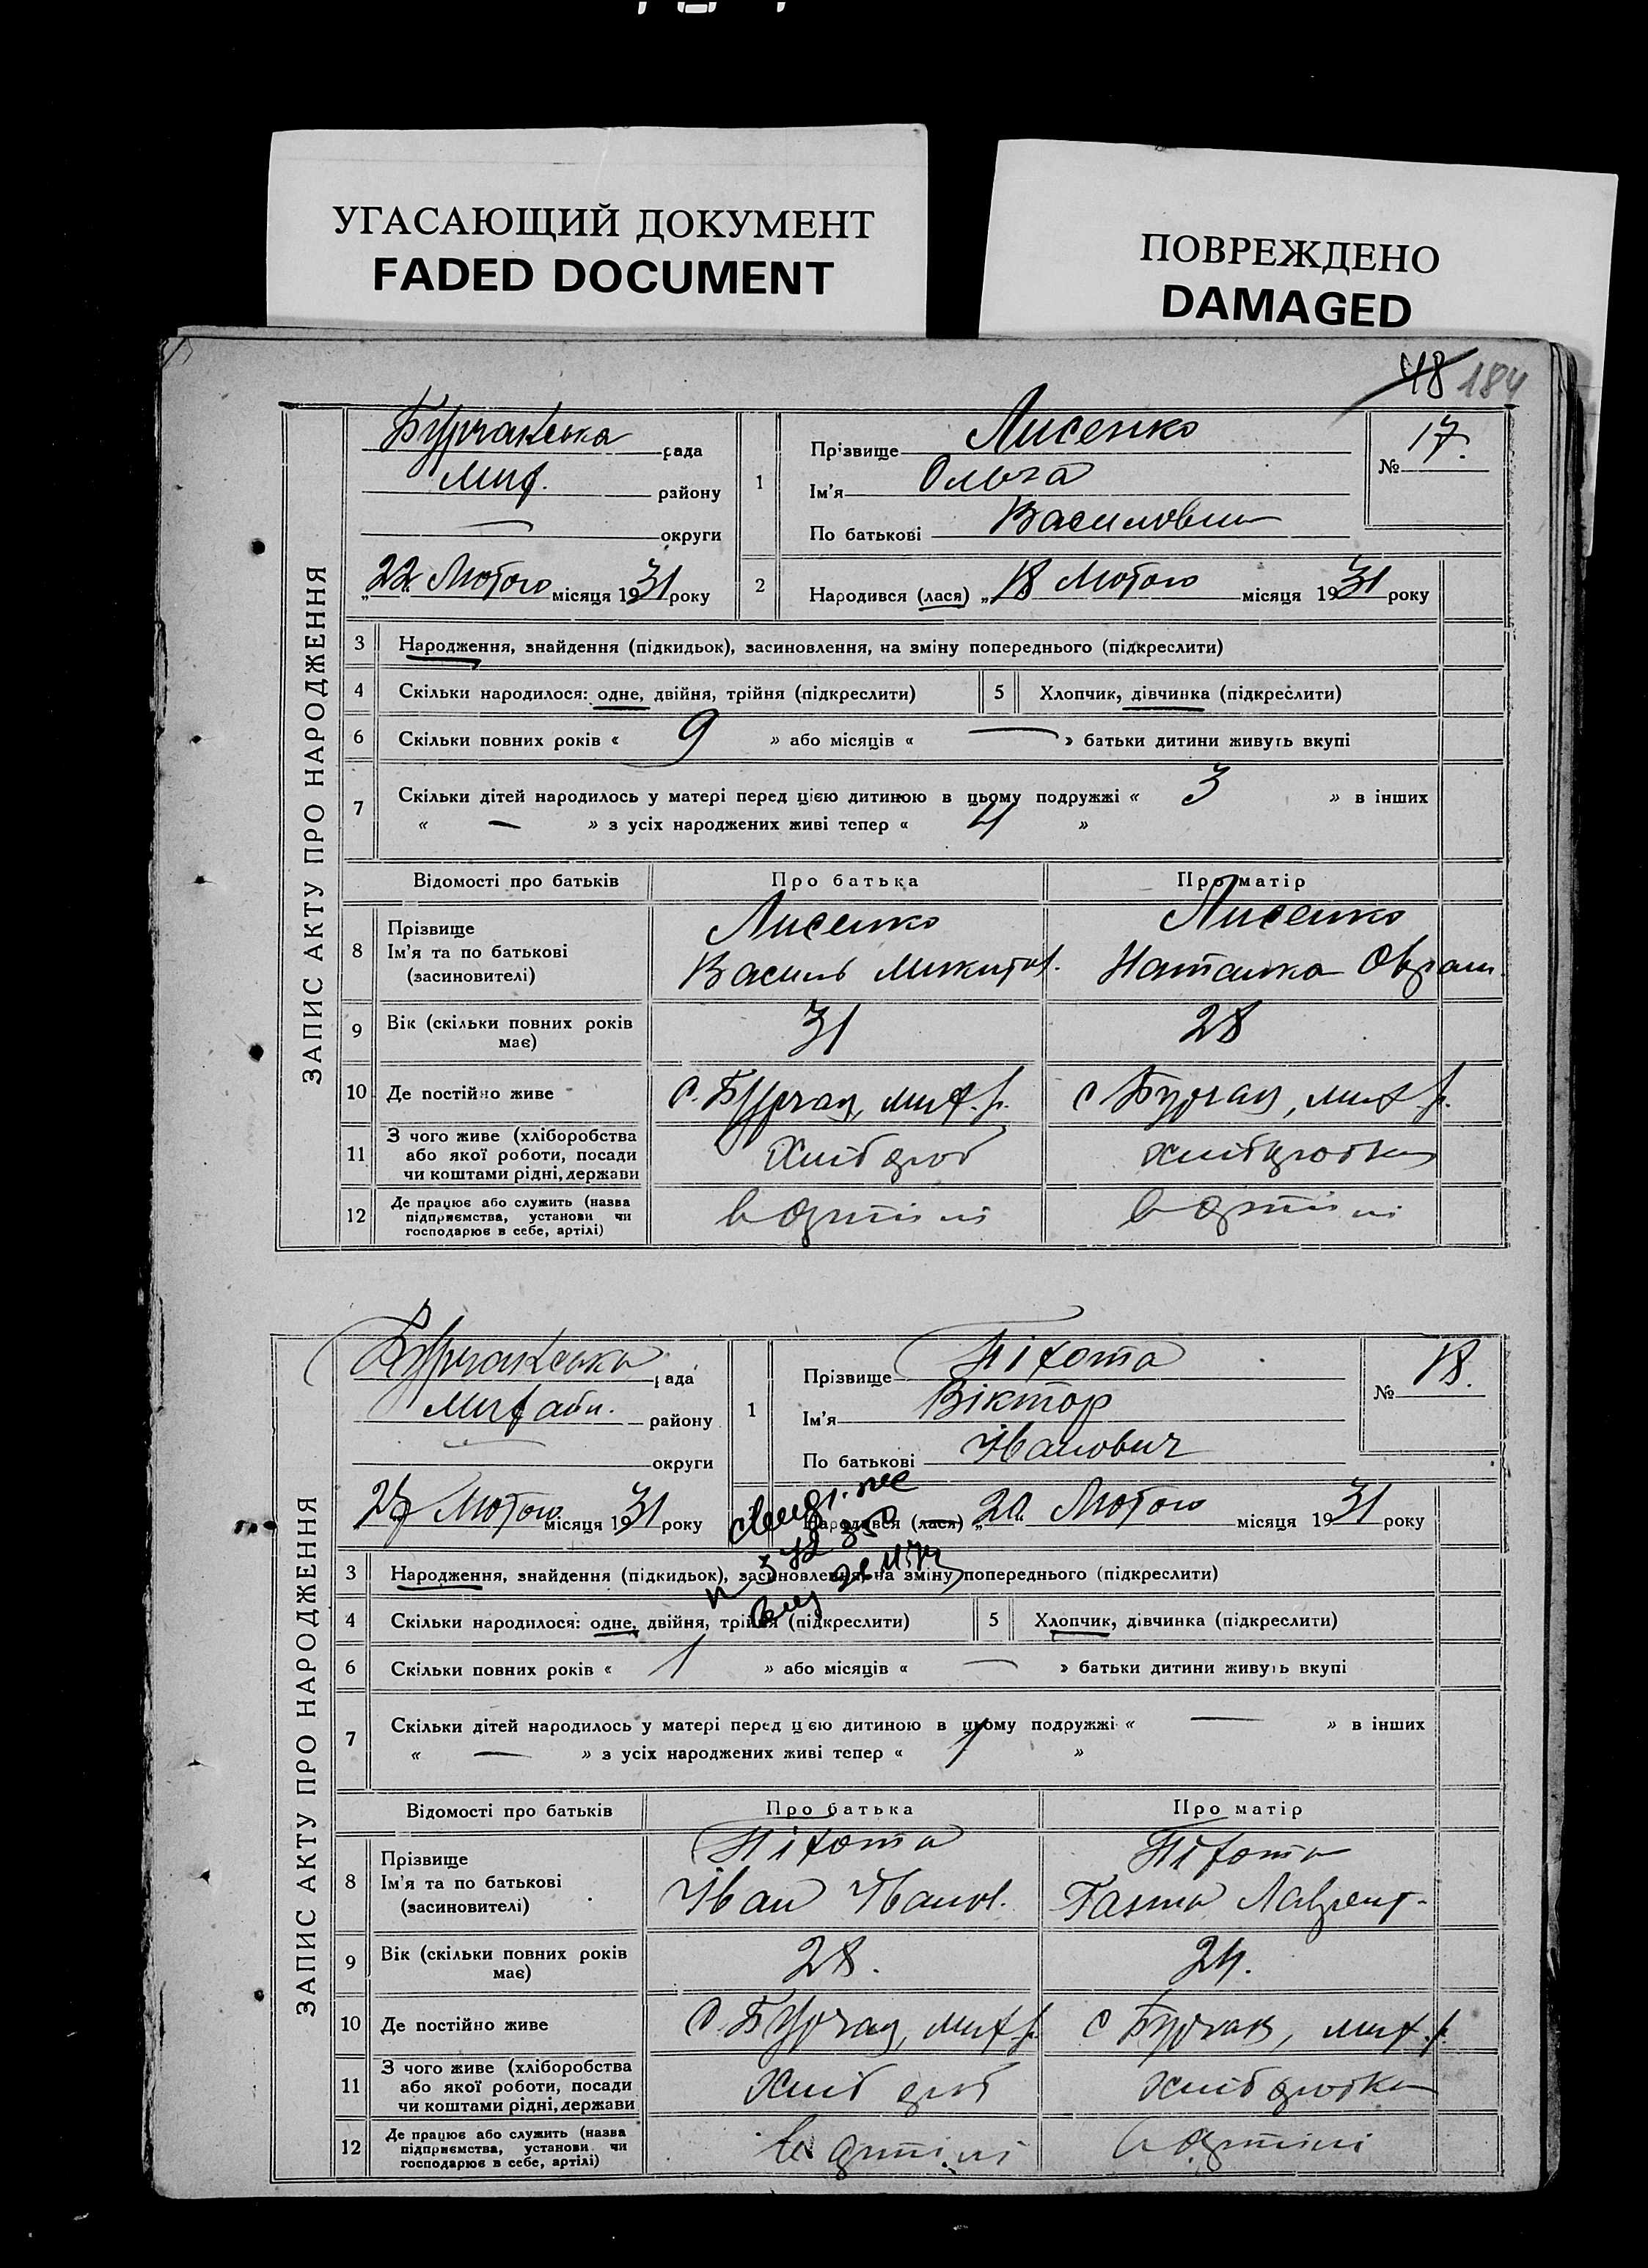 УГАСАЮЩИЙ ДОКУМЕНТ
FADED DOCUMENT
ПОВРЕЖДЕНО
DAMAGED
48 184
ЗАПИС АКТУ ПРО НАРОДЖЕННЯ
Бурчакська рада
Миф. району
— округи
„22“ Лютого місяця 1931 року
1 Прізвище Лисенко
Ім'я Ольга
По батькові
№ 17.
2 Народився (лася) „18 Лютого місяця 1931 року
3 Народження, знайдення (підкидьок), засиновлення, на зміну попереднього (підкреслити)
4 Скільки народилося: одне, двійня, трійня (підкреслити) 5 Хлопчик, дівчинка (підкреслити)
6 Скільки повних років « 9 » або місяців « — » батьки дитини живуть вкупі
7 Скільки дітей народилось у матері перед цією дитиною в цьому подружжі « 3 » в інших
« — » з усіх народжених живі тепер « 4 »
Відомості про батьків Про батька Про матір
8 Прізвище Лисенко Лисенко
Ім'я та по батькові Василь Микитов. Наталка Оврам.
(засиновителі)
9 Вік (скільки повних років має) 31 28
10 Де постійно живе с. Бурчак, миф. р. с Бурчак, миф р.
11 З чого живе (хліборобства або якої роботи, посади чи коштами рідні, держави хлібороб хліборобка
12 Де працює або служить (назва підприємства, установи чи господарює в себе, артілі) в артілі в артілі
ЗАПИС АКТУ ПРО НАРОДЖЕННЯ
Бурчакська рада
району
— округи
Лютого місяця 1931 року
1 Прізвище Піхота
Ім'я Віктор
По батькові Іванович
№ 18.
Народився (лася) „20 Лютого місяця 1931 року
3 Народження, знайдення (підкидьок), засиновлення, на зміну попереднього (підкреслити)
4 Скільки народилося: одне, двійня, трійня (підкреслити) 5 Хлопчик, дівчинка (підкреслити)
6 Скільки повних років « 1 » або місяців « — » батьки дитини живуть вкупі
7 Скільки дітей народилось у матері перед цією дитиною в цьому подружжі « — » в інших
« — » з усіх народжених живі тепер « 1 »
Відомості про батьків Про батька Про матір
8 Прізвище Піхота Піхота
Ім'я та по батькові Іван Іванов. Лаврент.
(засиновителі)
9 Вік (скільки повних років має) 28. 24.
10 Де постійно живе с. Бурчак, миф. р. с Бурчак, миф. р.
11 З чого живе (хліборобства або якої роботи, посади чи коштами рідні, держави хлібороб хліборобка
12 Де працює або служить (назва підприємства, установи чи господарює в себе, артілі) в артілі в артілі